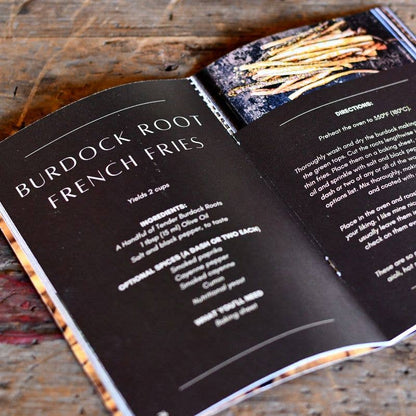 BURDOCK ROOT
FRENCH FRIES
Yields 2 cups
INGREDIENTS:
A Handful of Tender Burdock Roots
1 tbsp (15 ml) Olive Oil
Salt and black pepper, to taste
OPTIONAL SPICES (A DASH OR TWO EACH)
Smoked paprika
Cayenne pepper
Smoked cayenne
Cumin
Nutritional yeast
WHAT YOU'LL NEED
Baking sheet
DIRECTIONS:
Preheat the oven to 350°F (180°C)
Thoroughly wash and dry the burdock making
the green tops. Cut the roots lengthwise
thin fries. Place them on a baking sheet
oil and sprinkle with salt and black pepper,
dash or two of any or all of the
options list. Mix thoroughly, making
and coated with
Place in the oven and
your liking. I like mine
usually leave them
check on them
These are so